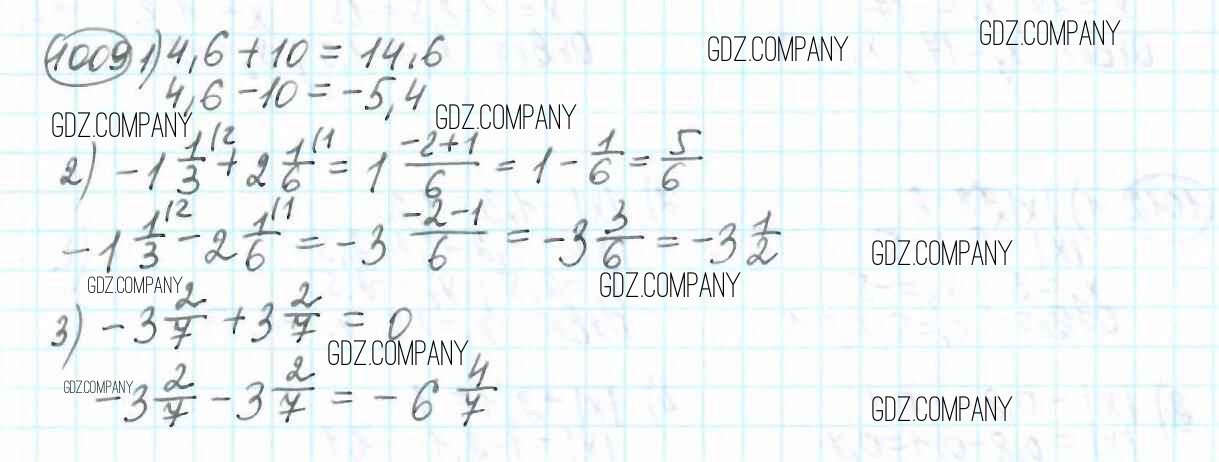 1009 1) 4,6 + 10 = 14,6
GDZ.COMPANY
GDZ.COMPANY
4,6 - 10 = -5,4
GDZ.COMPANY
GDZ.COMPANY
2) -1 1/3 |2 + 2 1/6 |1 = 1 (-2+1)/6 = 1 - 1/6 = 5/6
-1 1/3 |2 - 2 1/6 |1 = -3 (-2-1)/6 = -3 3/6 = -3 1/2
GDZ.COMPANY
GDZ.COMPANY
GDZ.COMPANY
3) -3 2/7 + 3 2/7 = 0
GDZ.COMPANY
GDZ.COMPANY
-3 2/7 - 3 2/7 = -6 4/7
GDZ.COMPANY